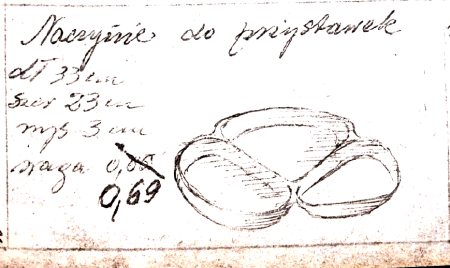 Naczynie do przystawek
dł 33 cm
szer 23 cm
wys 3 cm
waga 0,65
0,69